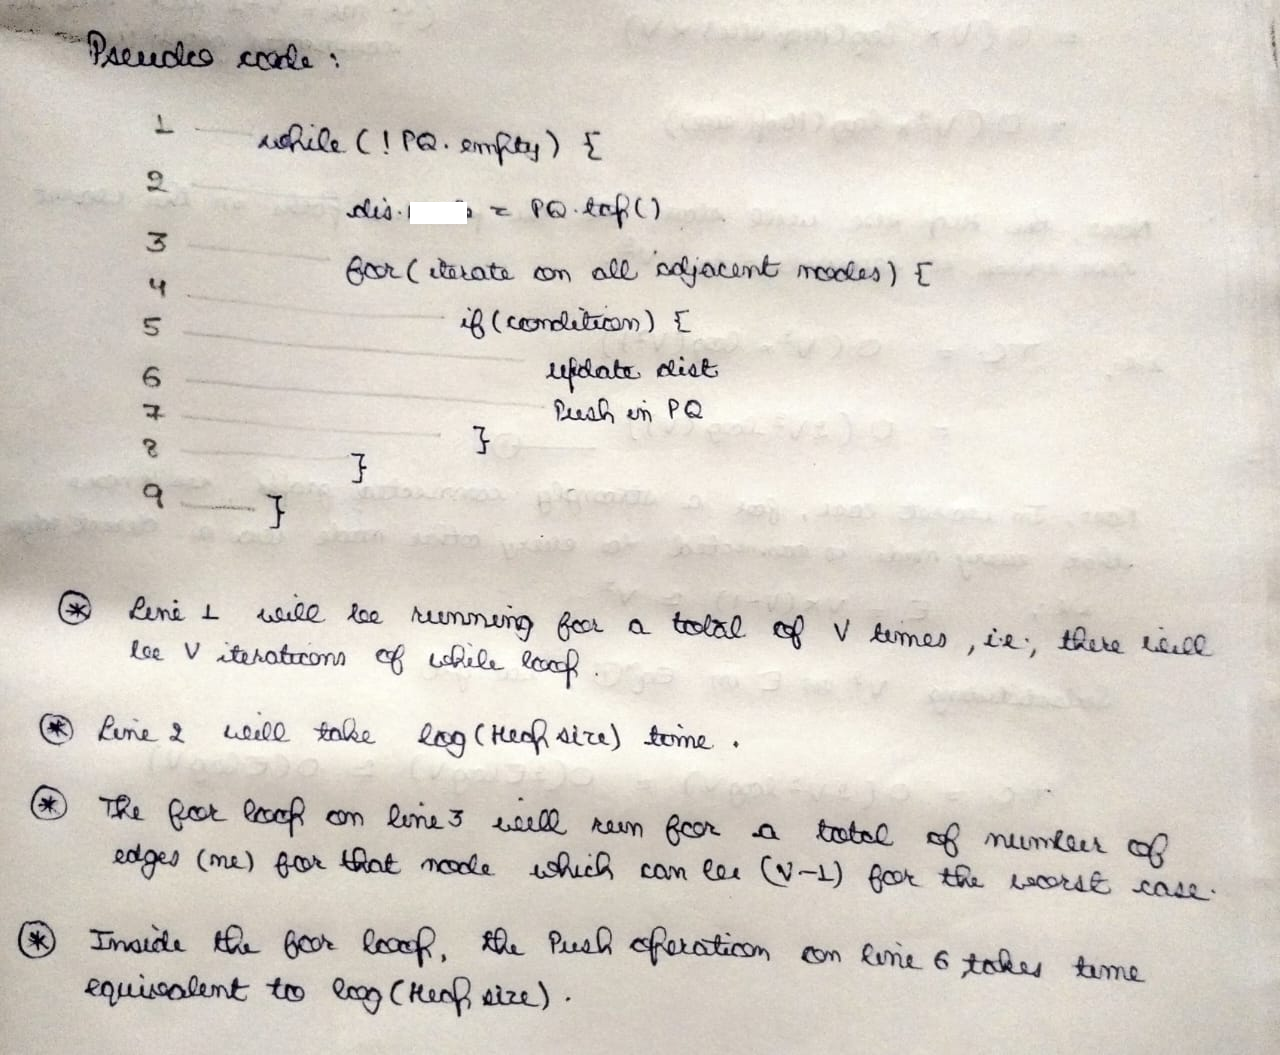 Pseudo code :
1 while ( ! PQ. empty) {
2 dis. = PQ.top()
3 for ( iterate on all adjacent nodes) {
4 if (condition) {
5 update dist
6 Push in PQ
7 }
8 }
9 }
* Line 1 will be running for a total of V times , i.e; there will
be V iterations of while loop .
* Line 2 will take log (Heap size) time .
* The for loop on line 3 will run for a total of number of
edges (ne) for that node which can be (V-1) for the worst case.
* Inside the for loop, the Push operation on line 6 takes time
equivalent to log (Heap size) .